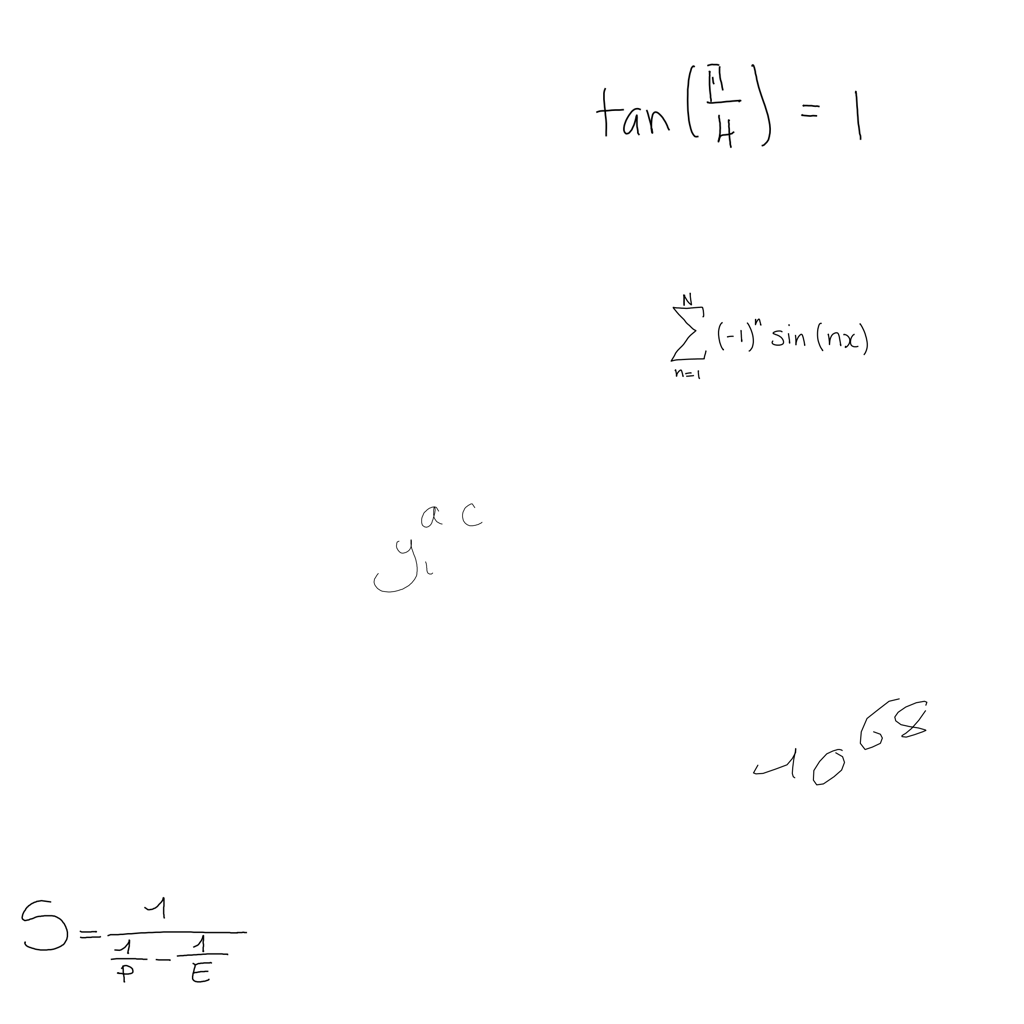 tan(π/4) = 1
∑_{n=1}^{N} (-1)^n sin(nx)
y_1^{a c}
10^{68}
S = 1/(1/P - 1/E)